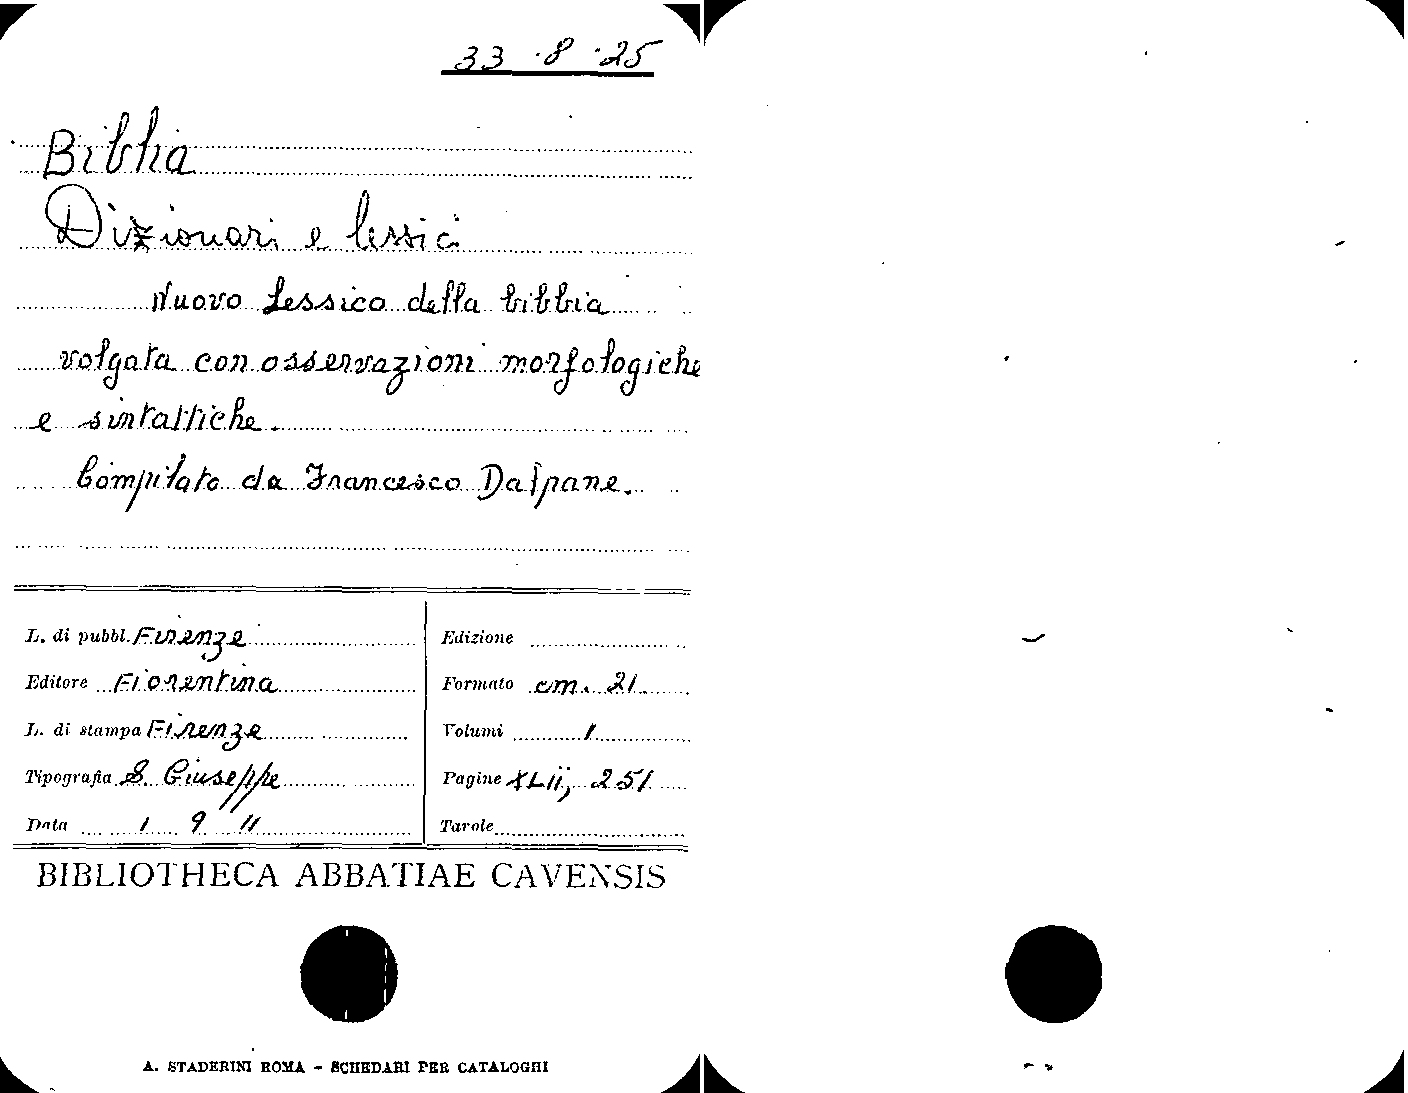 33 · 8 · 25
Biblia
Dizionari e lessici
Nuovo Lessico della bibbia
volgata con osservazioni morfologiche
e sintattiche.
Compilato da Francesco Dalpane.
L. di pubbl. Firenze
Editore Fiorentina
L. di stampa Firenze
Tipografia S. Giuseppe
Data 1911
Edizione
Formato cm. 21
Volumi 1
Pagine XLii, 251
Tavole
BIBLIOTHECA ABBATIAE CAVENSIS
A. STADERINI ROMA - SCHEDARI PER CATALOGHI